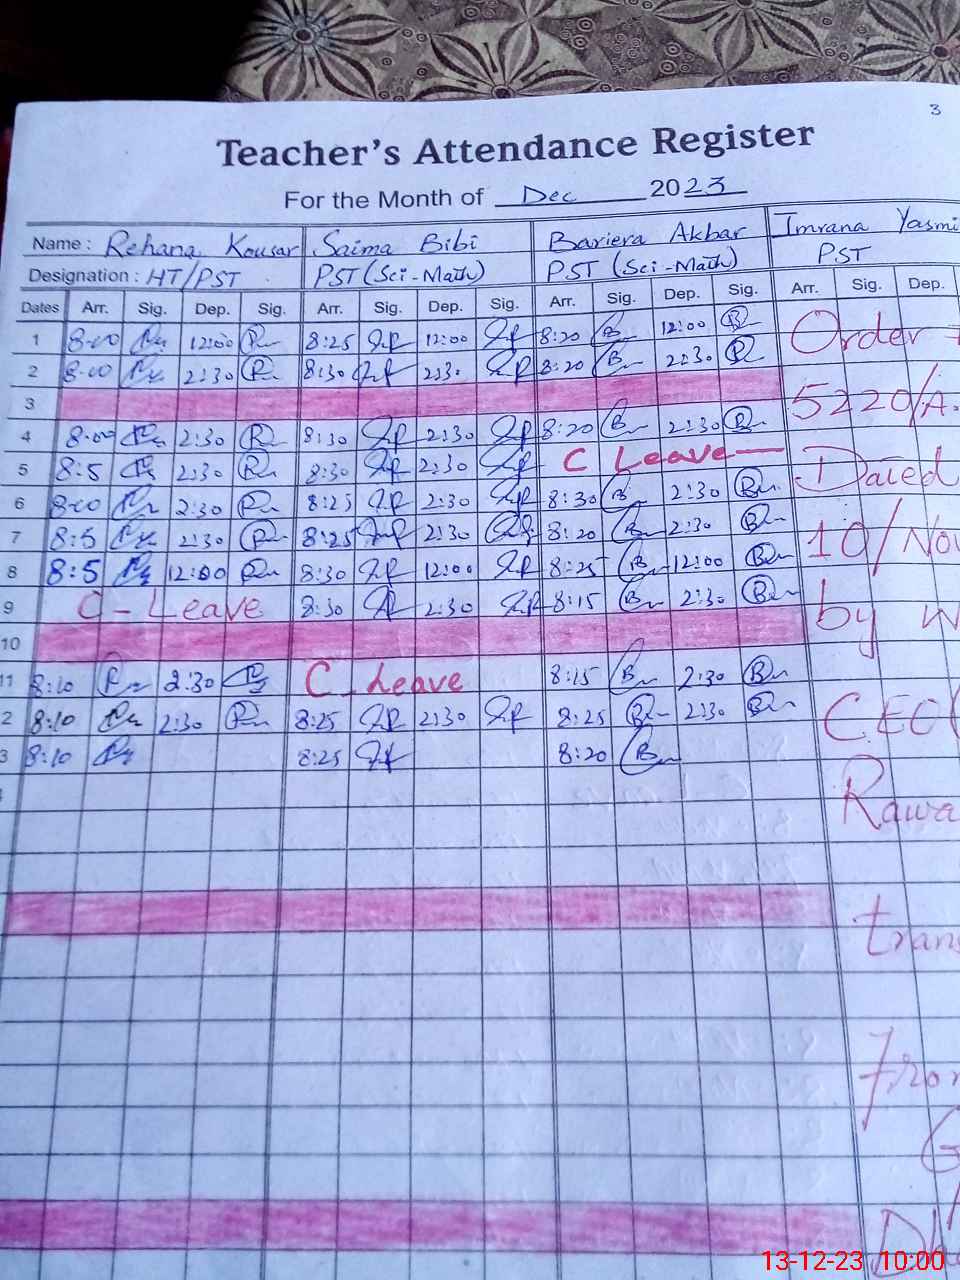 3
Teacher's Attendance Register
For the Month of Dec 2023
Name : Rehana Kousar Saima Bibi Bariera Akbar Imrana Yasmi
Designation : HT/PST PST (Sci-Math) PST (Sci-Math) PST
Dates Arr. Sig. Dep. Sig. Arr. Sig. Dep. Sig. Arr. Sig. Dep. Sig. Arr. Sig. Dep.
1 8:00 12:00 8:25 12:00 8:20 12:00 Order
2 8:00 2:30 8:30 2:30 8:20 2:30
3 5220/A.
4 8:00 2:30 8:30 2:30 8:20 2:30
5 8:5 2:30 8:30 2:30 C Leave Dated
6 8:00 2:30 8:25 2:30 8:30 2:30
7 8:5 2:30 8:25 2:30 8:20 2:30 10/Nov
8 8:5 12:00 8:30 12:00 8:25 12:00
9 C - Leave 8:30 2:30 8:15 2:30 by
10
11 8:10 2:30 C - Leave 8:15 2:30
2 8:10 2:30 8:25 2:30 8:25 2:30 CEO(
3 8:10 8:25 8:20
Rawa
trans
From
G
13-12-23 10:00